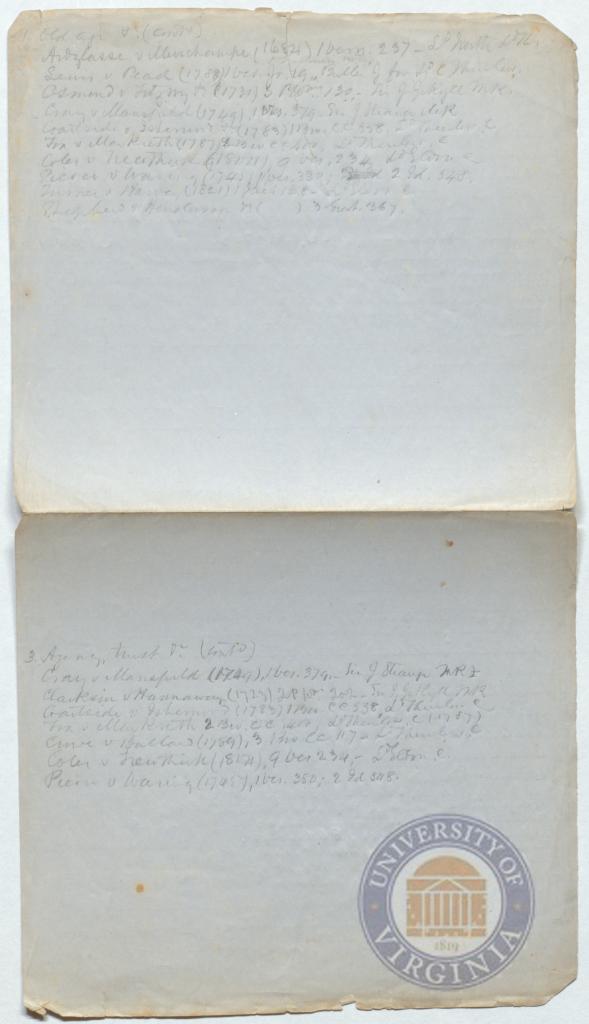 1. Old age &c. (cont'd)
Ardglasse v Muschampe (1684) 1 Vern. 237 - Ld North, Ld K.
v Pead (1788) 1 Ves. Jr. 19, Buller J for Ld C Thurlow.
Osmond v Fitzroy (1731) 3 P Wms 130 - Sir J Jekyll M.R.
v Mansfield (1749), 1 Ves. 379 - Sir J Strange M.R
Gartside v Isherwood (1783) 1 Bro. CC 558, Ld Thurlow, C
Fox v Mackreth (1787) 2 Bro CC 400, Ld Thurlow, C
Coles v Trecothick (1804), 9 Ves. 234, Ld Eldon C
Pierce v Waring (1745), 1 Ves. 380; 2 Ed. 548.
v (1821) 1
v Henderson ( ) 3 Grat. 367.
3. Agency, trust &c. (cont'd)
v Mansfield (1749), 1 Ves. 379 - Sir J Strange M.R
Clarkson v Hannaway (1723) 2 P Wms 202 - Sir J Jekyll M.R.
Gartside v Isherwood (1783) 1 Bro. CC 558, Ld Thurlow C
Fox v Mackreth 2 Bro. CC 400, Ld Thurlow, C (1787)
v (1789), 3 Bro CC 117 - Ld Thurlow, C
Coles v Trecothick (1804), 9 Ves 234, - Ld Eldon, C.
Pierce v Waring (1745), 1 Ves. 380; 2 Ed 548.
UNIVERSITY OF
1819
VIRGINIA